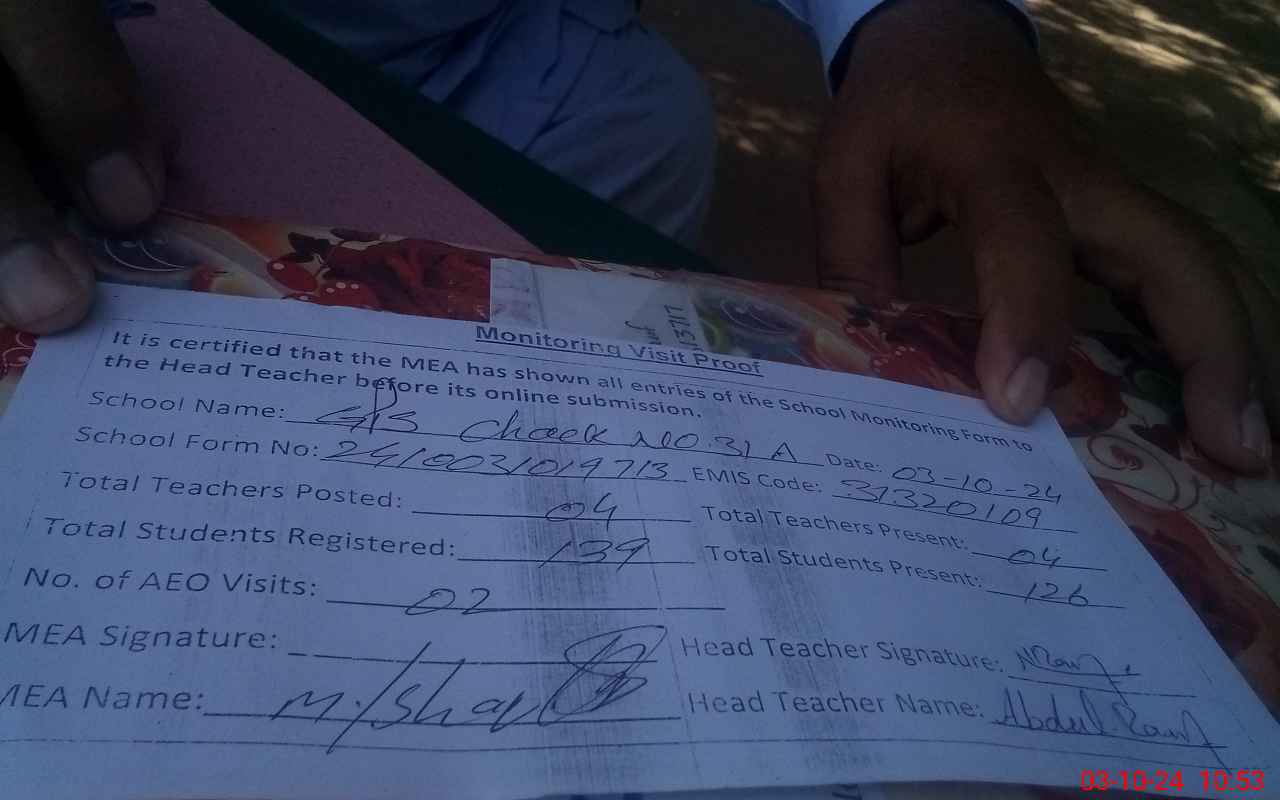 Monitoring Visit Proof
It is certified that the MEA has shown all entries of the School Monitoring Form to
the Head Teacher before its online submission.
School Name: GPS Chack NO. 31 A Date: 03-10-24
School Form No: 2410031019713 EMIS Code: 31320109
Total Teachers Posted: 04 Total Teachers Present: 04
Total Students Registered: 139 Total Students Present: 126
No. of AEO Visits: 02
MEA Signature: Head Teacher Signature:
MEA Name: Head Teacher Name: Abdul Rauf
03-10-24 10:53